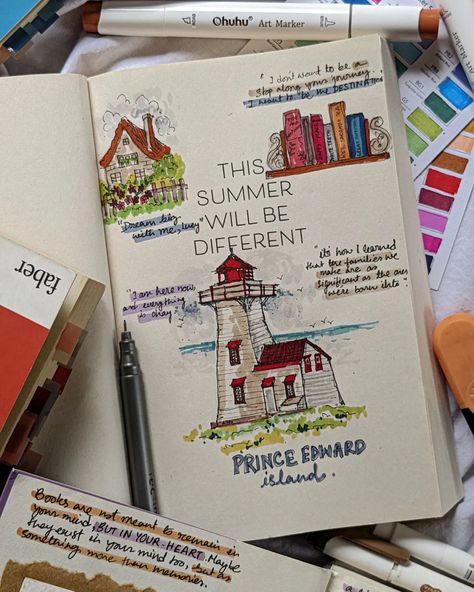 Ohuhu Art Marker
"I don't want to be a
stop along your journey.
I want to be the DESTINATION
THIS
SUMMER
WILL BE
DIFFERENT
"Dream big
with me, Lucy"
"it's how I learned
that the families we
make are as
significant as the ones
were born into."
"I am here now
and everything
is okay"
faber
PRINCE EDWARD
island.
Books are not meant to remain in
your mind, BUT IN YOUR HEART. Maybe
they exist in your mind too, but as
something more than memories.